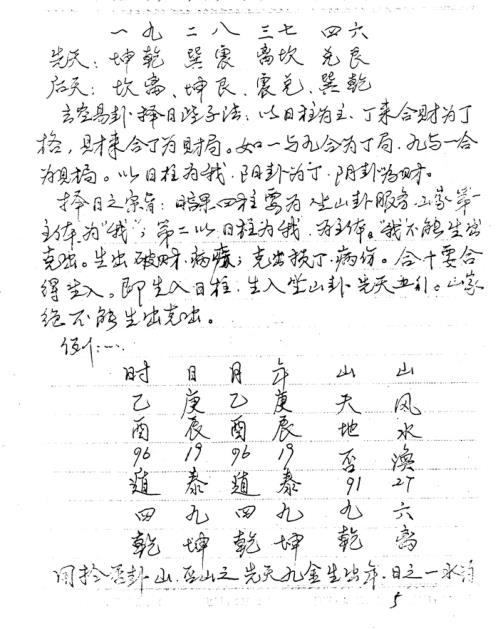 一九 二八 三七 四六
先天：坤乾 巽震 离坎 兑艮
后天：坎离、坤艮、震兑、巽乾
玄空易卦择日选子法：以日柱为主，丁来合财为丁
格，财来合丁为财局。如一与九合为丁局，九与一合
为财局。以日柱为我，阳卦为丁，阴卦为财。
择日之宗旨：日课四柱要为坐山卦服务，山家第一
主体为“我”；第二以日柱为我，为主体。“我不能生出
克出。生出破财，病疾；克出损丁，病伤。合十要合
得生入。即生入日柱，生入坐山卦先天五行。山家
绝不能生出克出。
例：…
时 日 月 年 山 山
乙 庚 乙 庚 天 风
酉 辰 酉 辰 地 水
96 19 96 19 否 涣
遁 泰 遁 泰 91 27
四 九 四 九 九 六
乾 坤 乾 坤 乾 离
用于否卦山，否山之先天九金生出年、日之一水
5